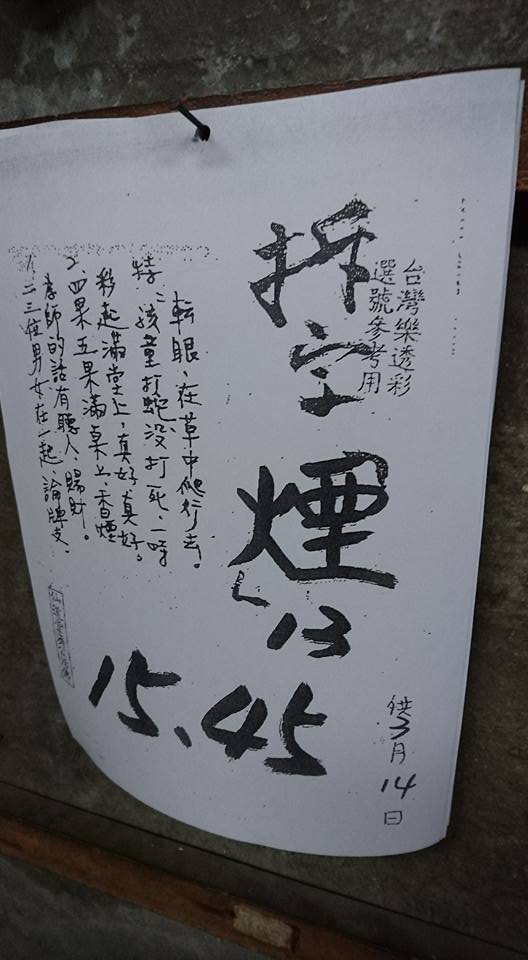 台灣樂透彩
選號參考用
拆字煙
13
15、45
供3月14日
1、二三位男女在一起論牌支、
師的話有聽入、賜財。
2、四果五果滿桌上、香煙
彩起滿堂上,真好真好。
特、孩童打蛇沒打死、一時
轉眼、在草中爬行去。